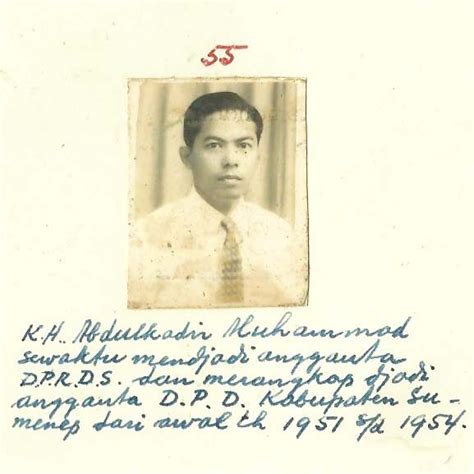 55
K.H. Abdulkadir Muhammad
sewaktu mendjadi anggauta
D.P.R.D.S. dan merangkap djadi
anggauta D.P.D. Kabupaten Su-
menep dari awal th 1951 s/d 1954.